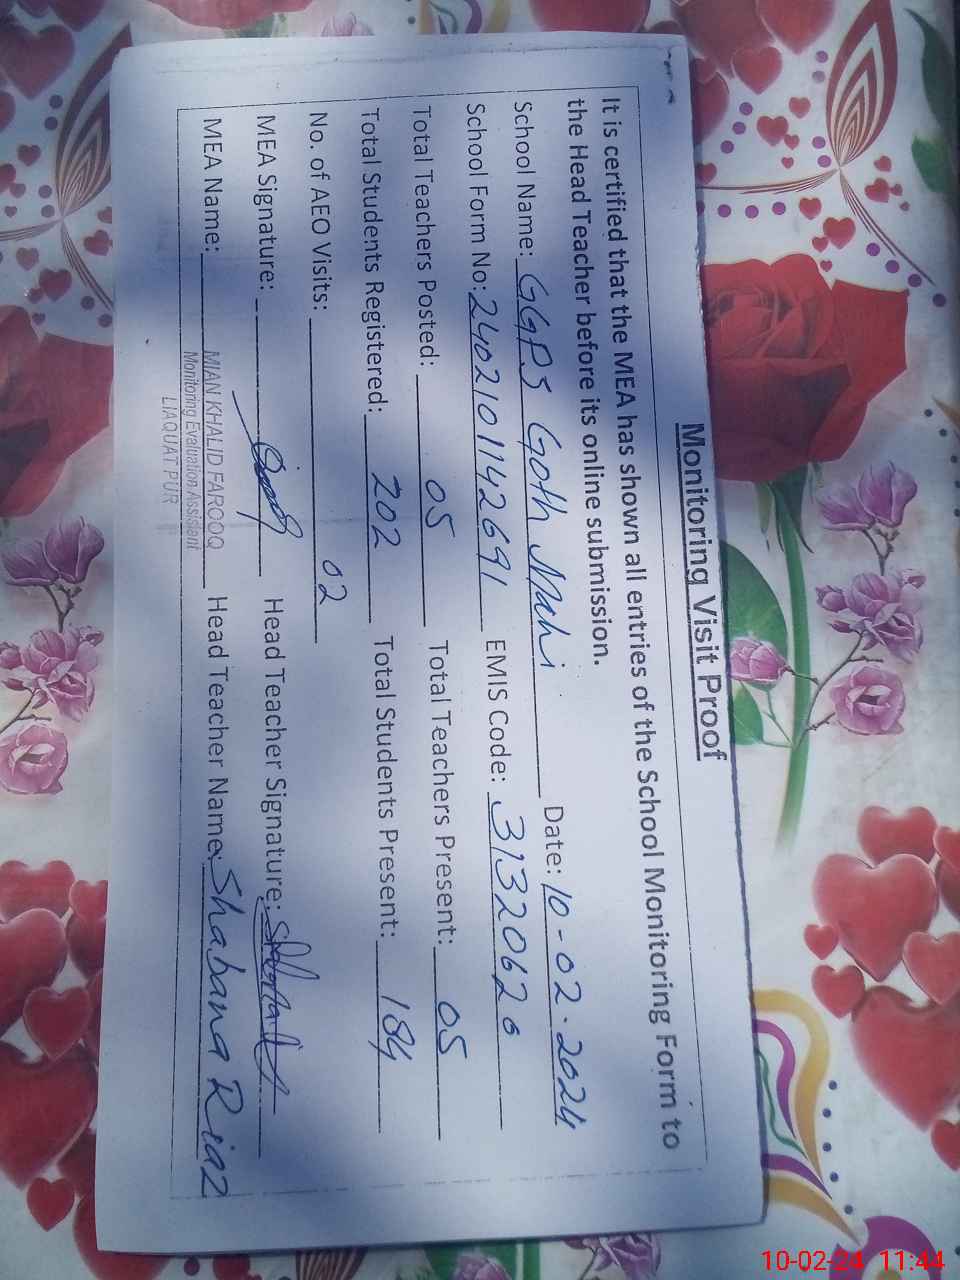 Monitoring Visit Proof
It is certified that the MEA has shown all entries of the School Monitoring Form to
the Head Teacher before its online submission.
School Name: GGPS Goth Mahi Date: 10-02-2024
School Form No: 2402101142691 EMIS Code: 31320620
Total Teachers Posted: 05 Total Teachers Present: 05
Total Students Registered: 202 Total Students Present: 184
No. of AEO Visits: 02
MEA Signature: Head Teacher Signature:
MEA Name: MIAN KHALID FAROOQ Head Teacher Name: Shabana Riaz
Monitoring Evaluation Assistent
LIAQUAT PUR
10-02-24 11:44